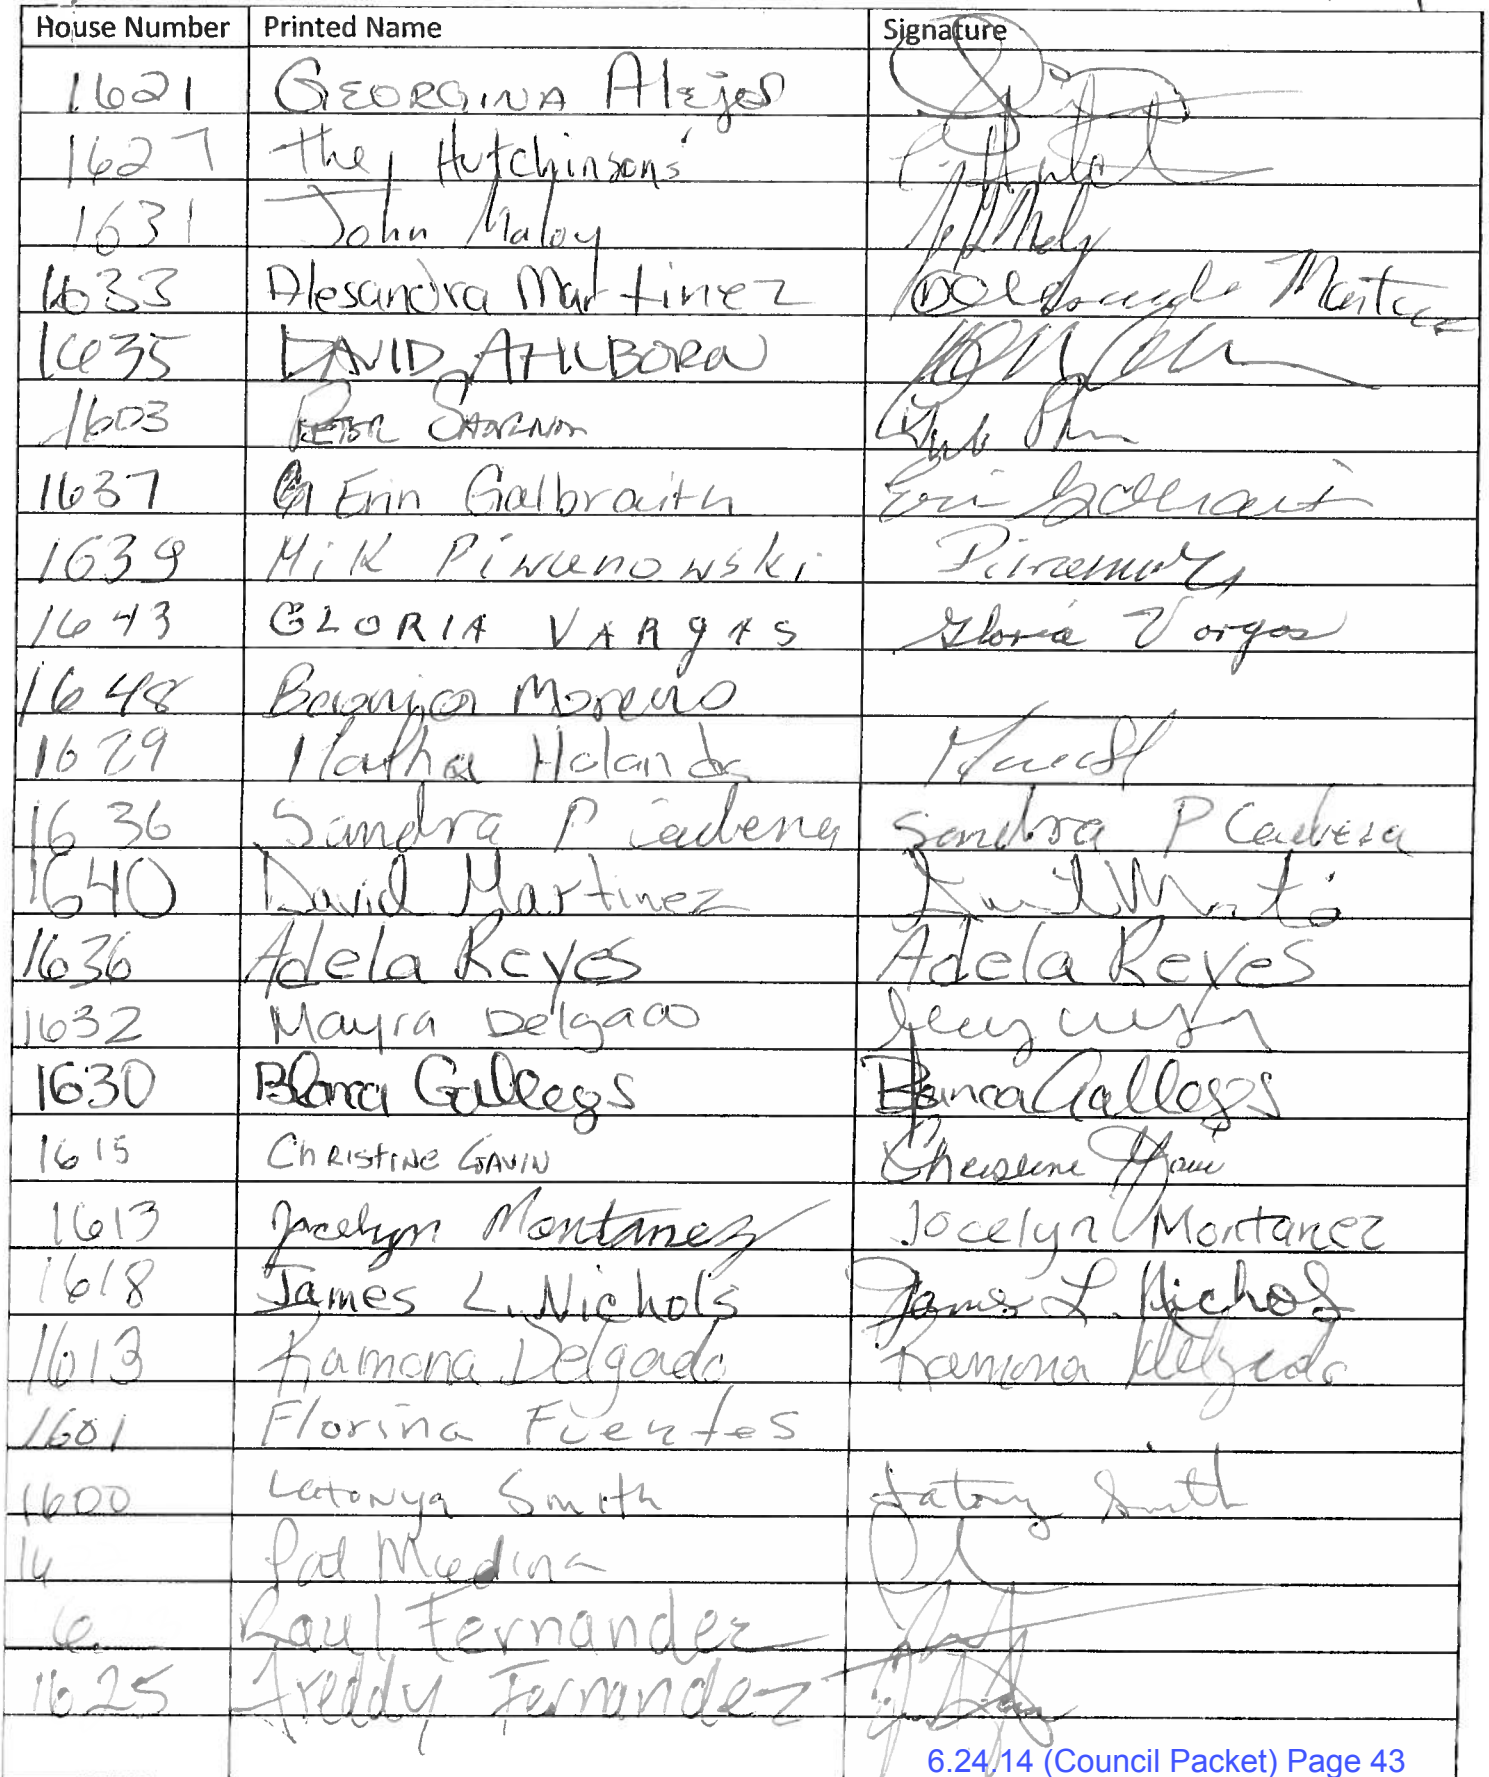 House Number Printed Name Signature
1621 GEORGINA Alejos
1627 the Hutchinsons'
1631 John Maloy
1633 Alesandra Martinez
1635 DAVID AHLBORN
1603 PETER
1637 Erin Galbraith Erin Galbraith
1639 Mik Piwanowski
1643 GLORIA VARgAS Gloria Vargas
1648 Moreno
1629 Holanda
1636 Sandra P Cadena Sandra P Cadena
1640 David Martinez
1636 Adela Reyes Adela Reyes
1632 Mayra Delgado
1630 Blanca Gallegos Blanca Gallegos
1615 CHRISTINE GAVIN Christine
1613 Jocelyn Montanez Jocelyn Montanez
1618 James L. Nichols James L. Nichols
1613 Ramona Delgado Ramona Delgado
1601 Florina Fuentes
1600 Latonya Smith Latonya Smith
Pat Medina
Raul Fernandez
1625 Freddy Fernandez
6.24.14 (Council Packet) Page 43